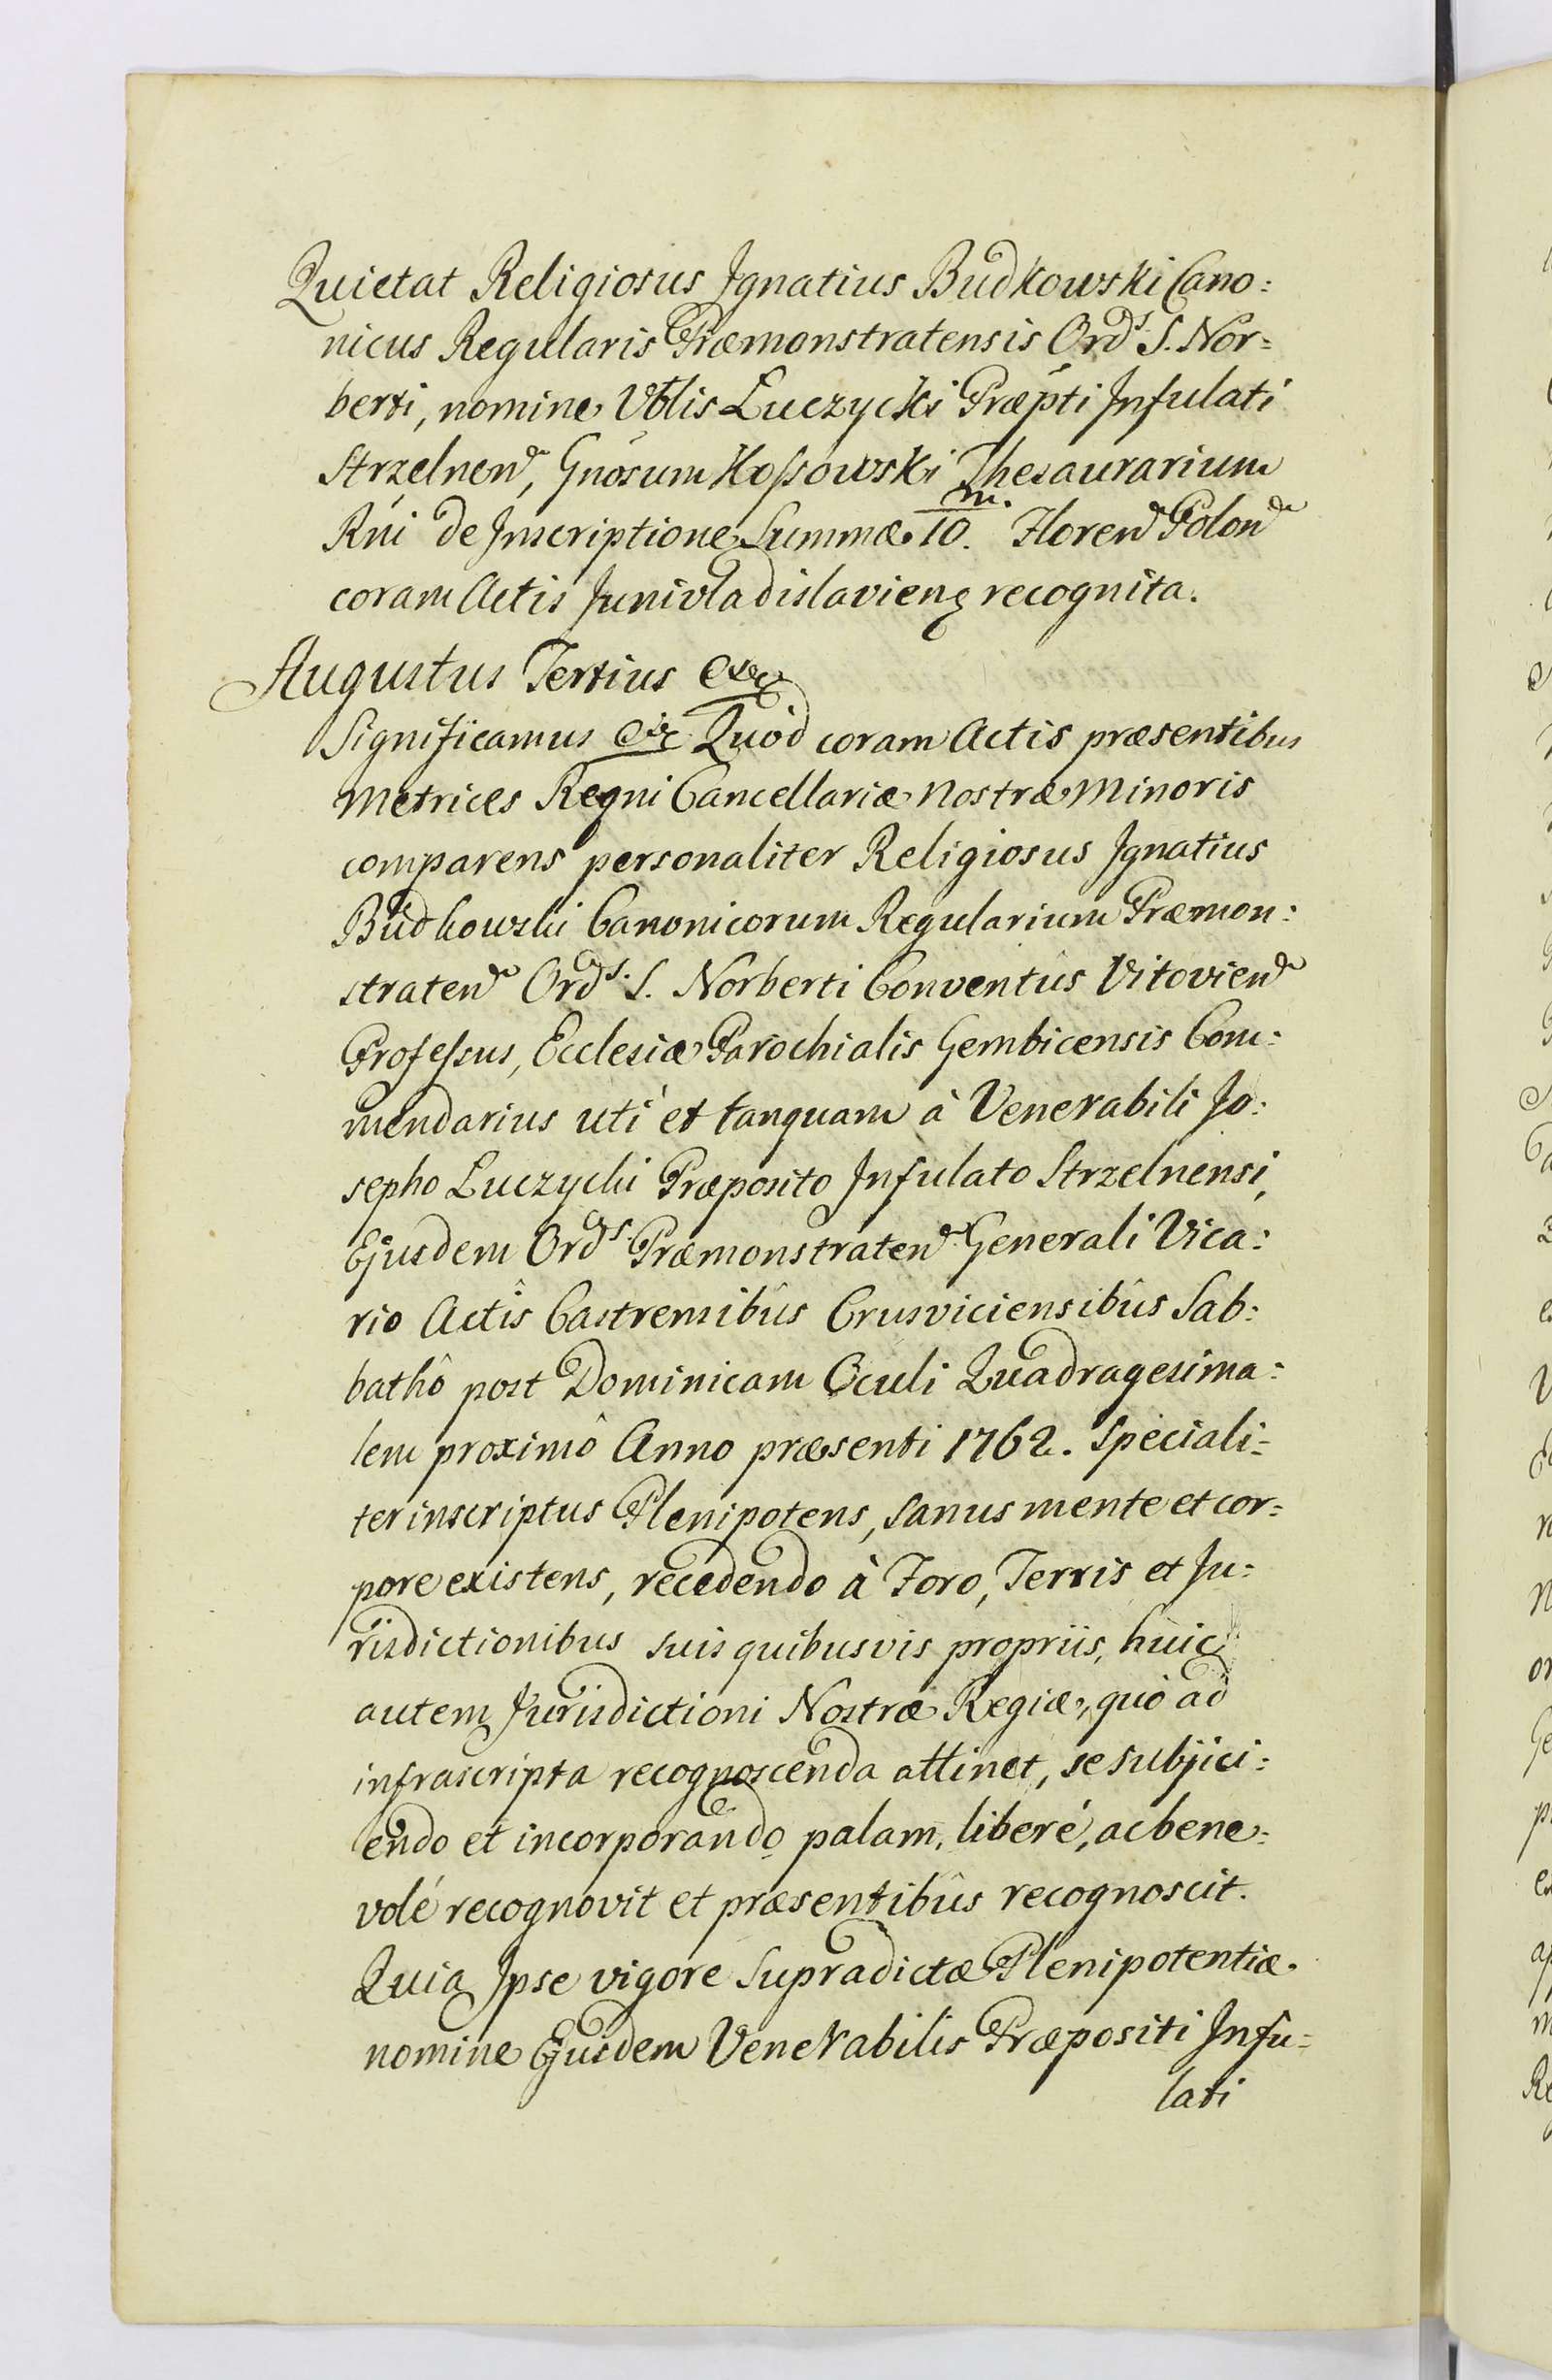 Quietat Religiosus Ignatius Budkowski Cano:
nicus Regularis Præmonstratensis Ord̃s S. Nor:
berti, nomine Vblis Łuczycki Præpti Infulati
Strzelnen̄, Gnosum Kossowski Thesaurarium
Rni de Inscriptione Summæ 10.m. Floren̄ Polon̄
coram Actis Junivladislavien̄ recognita.
Augustus Tertius etc
Significamus etc Quod coram Actis præsentibus
Metrices Regni Cancellariæ nostræ Minoris
comparens personaliter Religiosus Ignatius
Budkowski Canonicorum Regularium Præmon:
straten̄ Ord̃s. S. Norberti Conventûs Vitovien̄
Professus, Ecclesiæ Parochialis Gembicensis Com:
mendarius uti et tanquam à Venerabili Jo:
sepho Łuczycki Præposito Infulato Strzelnensi,
Ejusdem Ord̃s. Præmonstraten̄ Generali Vica:
rio Actîs Castrensibûs Crusviciensibûs Sab:
bathô post Dominicam Oculi Quadragesima:
lem proximô Anno præsenti 1762. speciali:
ter inscriptus Plenipotens, sanus mente et cor:
pore existens, recedendo à Foro, Terris et Ju:
risdictionibus suis quibusvis propriis, huic
autem Jurisdictioni Nostræ Regiæ, quò ad
infrascripta recognoscenda attinet, se subjici:
endo et incorporando palam, liberé, ac bene:
volé recognovit et præsentibûs recognoscit.
Quia Ipse vigore supradictæ Plenipotentiæ
nomine Ejusdem Venerabilis Præpositi Infu:
lati